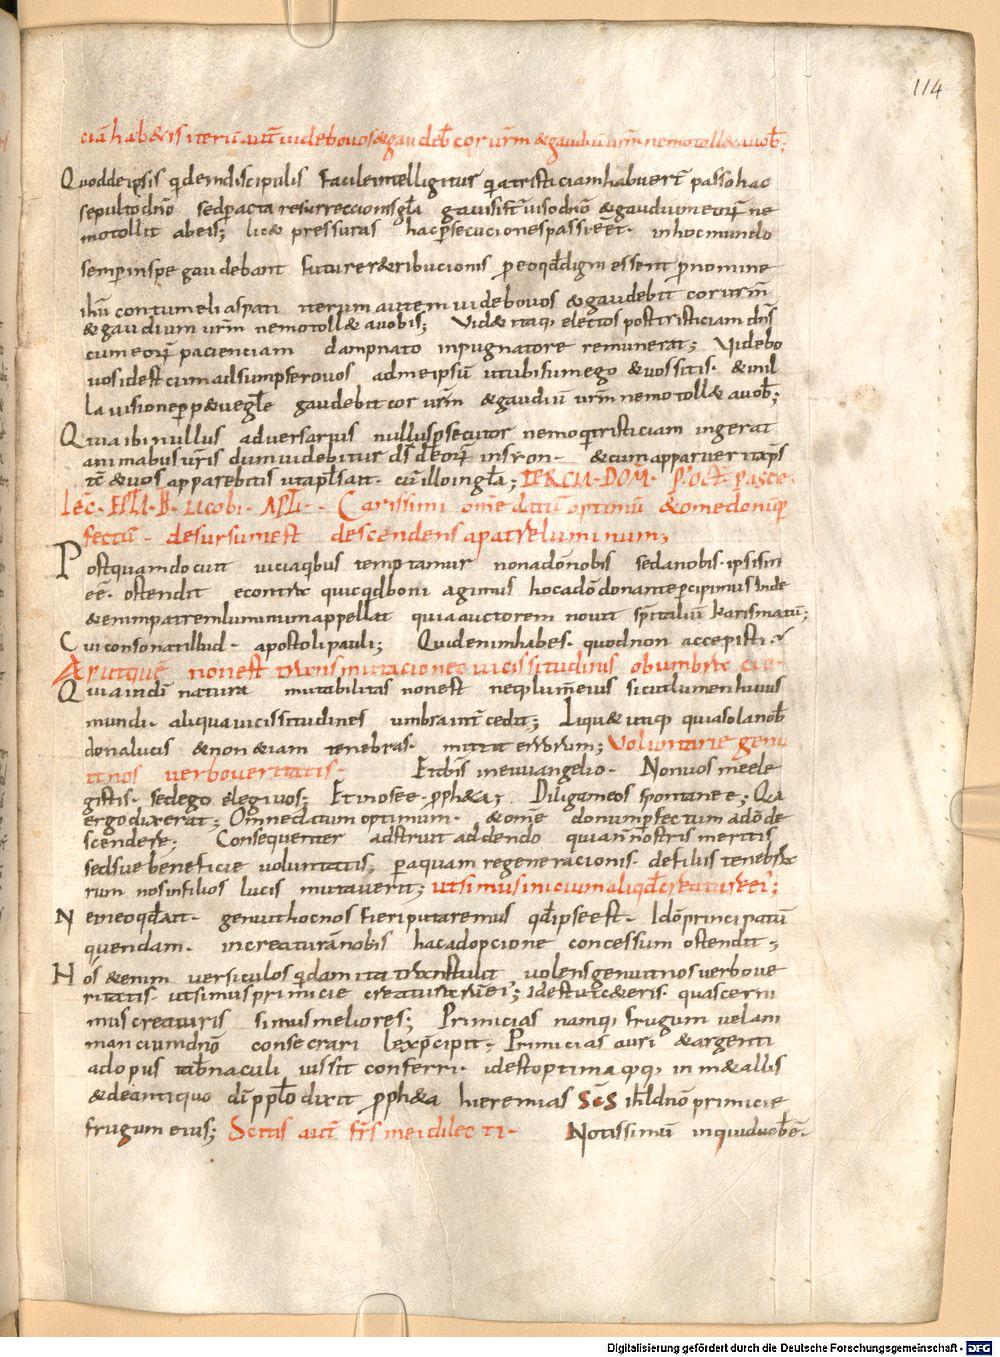 114
ciā hab&is iterū aut̄ uidebo uos & gaudeb̄ cor ur̄m & gaudiū ur̄m nemo toll& a uob̄;
Quod de ipsis qidem discipulis facile intelligitur qia tristiciam habuer̄ passo hac
sepulto dn̄o sed pacta resurreccionis gl̄a gauisi st̄ uiso dn̄o & gaudium eoꝝ ne
mo tollit ab eis; lic& pressuras hac psecuciones passi eēt. in hoc mundo
semper in spe gaudebant future r&ribucionis p eo qd̄ digni essent p nomine
ih̄u contumelias pati iterum autem uidebo uos & gaudebit cor ur̄m
& gaudium ur̄m nemo toll& a uobis; Vid& itaq electos post tristiciam dn̄s
cum eoꝝ pacienciam dampnato inpugnatore remunerat; Videbo
uos id est cum adsumpsero uos ad me ipsū ut ubi sum ego & uos sitis. & in il
la uisione ppetue gl̄e gaudebit cor ur̄m & gaudiū ur̄m nemo toll& a uob̄;
Quia ibi nullus adversarius nullus psecutor nemo q tristiciam ingerat
animabus ur̄is dum uidebitur ds̄ deoꝝ in syon. & cum apparuerit aps
tc̄ & uos apparebitis ut apl̄s ait. cū illo in gl̄a; TERCIA. DOM̄. P̄ OCT̄. pasce.
lec̄. EPLA. B. iacobi. APLI. Carissimi om̄e datū optimū & om̄e donū p
fectū. desursum est descendens a patre luminum;
Postquam docuit uicia qibus temptamur non a dō nobis sed a nobis ipsis in
eē. ostendit econtra quicqd boni agimus hoc a dō donante percipimus Inde
& enim patrem luminum appellat quia auctorem nouit spiritaliū karismatū;
Cui consonat illud. apostoli pauli; Quid enim habes. quod non accepisti.
Aput quē non est transmutacio nec uicissitudinis obumbracio.
Quia in dī natura mutabilitas non est neq lum̄ eius sicut lumen huius
mundi. aliqua uicissitudines umbra interced&; Liqu& itaq quia sola nob̄
dona lucis & non &iam tenebras. mittit errorum; Voluntarie genu
it nos uerbo ueritatis. Et dn̄s in euuangelio. Non uos me ele
gistis. sed ego elegi uos; Et in osee. pph&a; Diligam eos spontanee; Qđ
ergo dixerat; Omne datum optimum. & om̄e donum pfectum a dō de
scendere; Consequenter adstruit addendo quia n̄ nostris meritis
sed sue beneficie uoluntatis; p aquam regeneracionis. de filiis tenebra
rum nos in filios lucis mutauerit; ut simus inicium aliqd creature ei;
Ne in eo qd̄ ait. genuit hoc nos fieri putaremus qd̄ ipse est. Idō principatū
quendam. in creatura nobis hac adopcione concessum ostendit;
Hos &enim uersiculos qidam ita transtulit uolens genuit nos uerbo ue
ritatis. ut simus primicie creaturarū ei; id est ut c&eris quas cerni
mus creaturis simus meliores; Primicias namq frugum uel ani
mancium dn̄o consecrari lex pcipit; Primicias auri & argenti
ad opus tab̄naculi iussit conferri. id est optima qq in m&allis
& de antiquo dī ppl̄o dixit pph&a hieremias SC̄S isr̄l dn̄o primicie
frugum eius; Scitis aut̄ fr̄s mei dilecti. Notissimū inquid uob̄ ē.
Digitalisierung gefördert durch die Deutsche Forschungsgemeinschaft - DFG